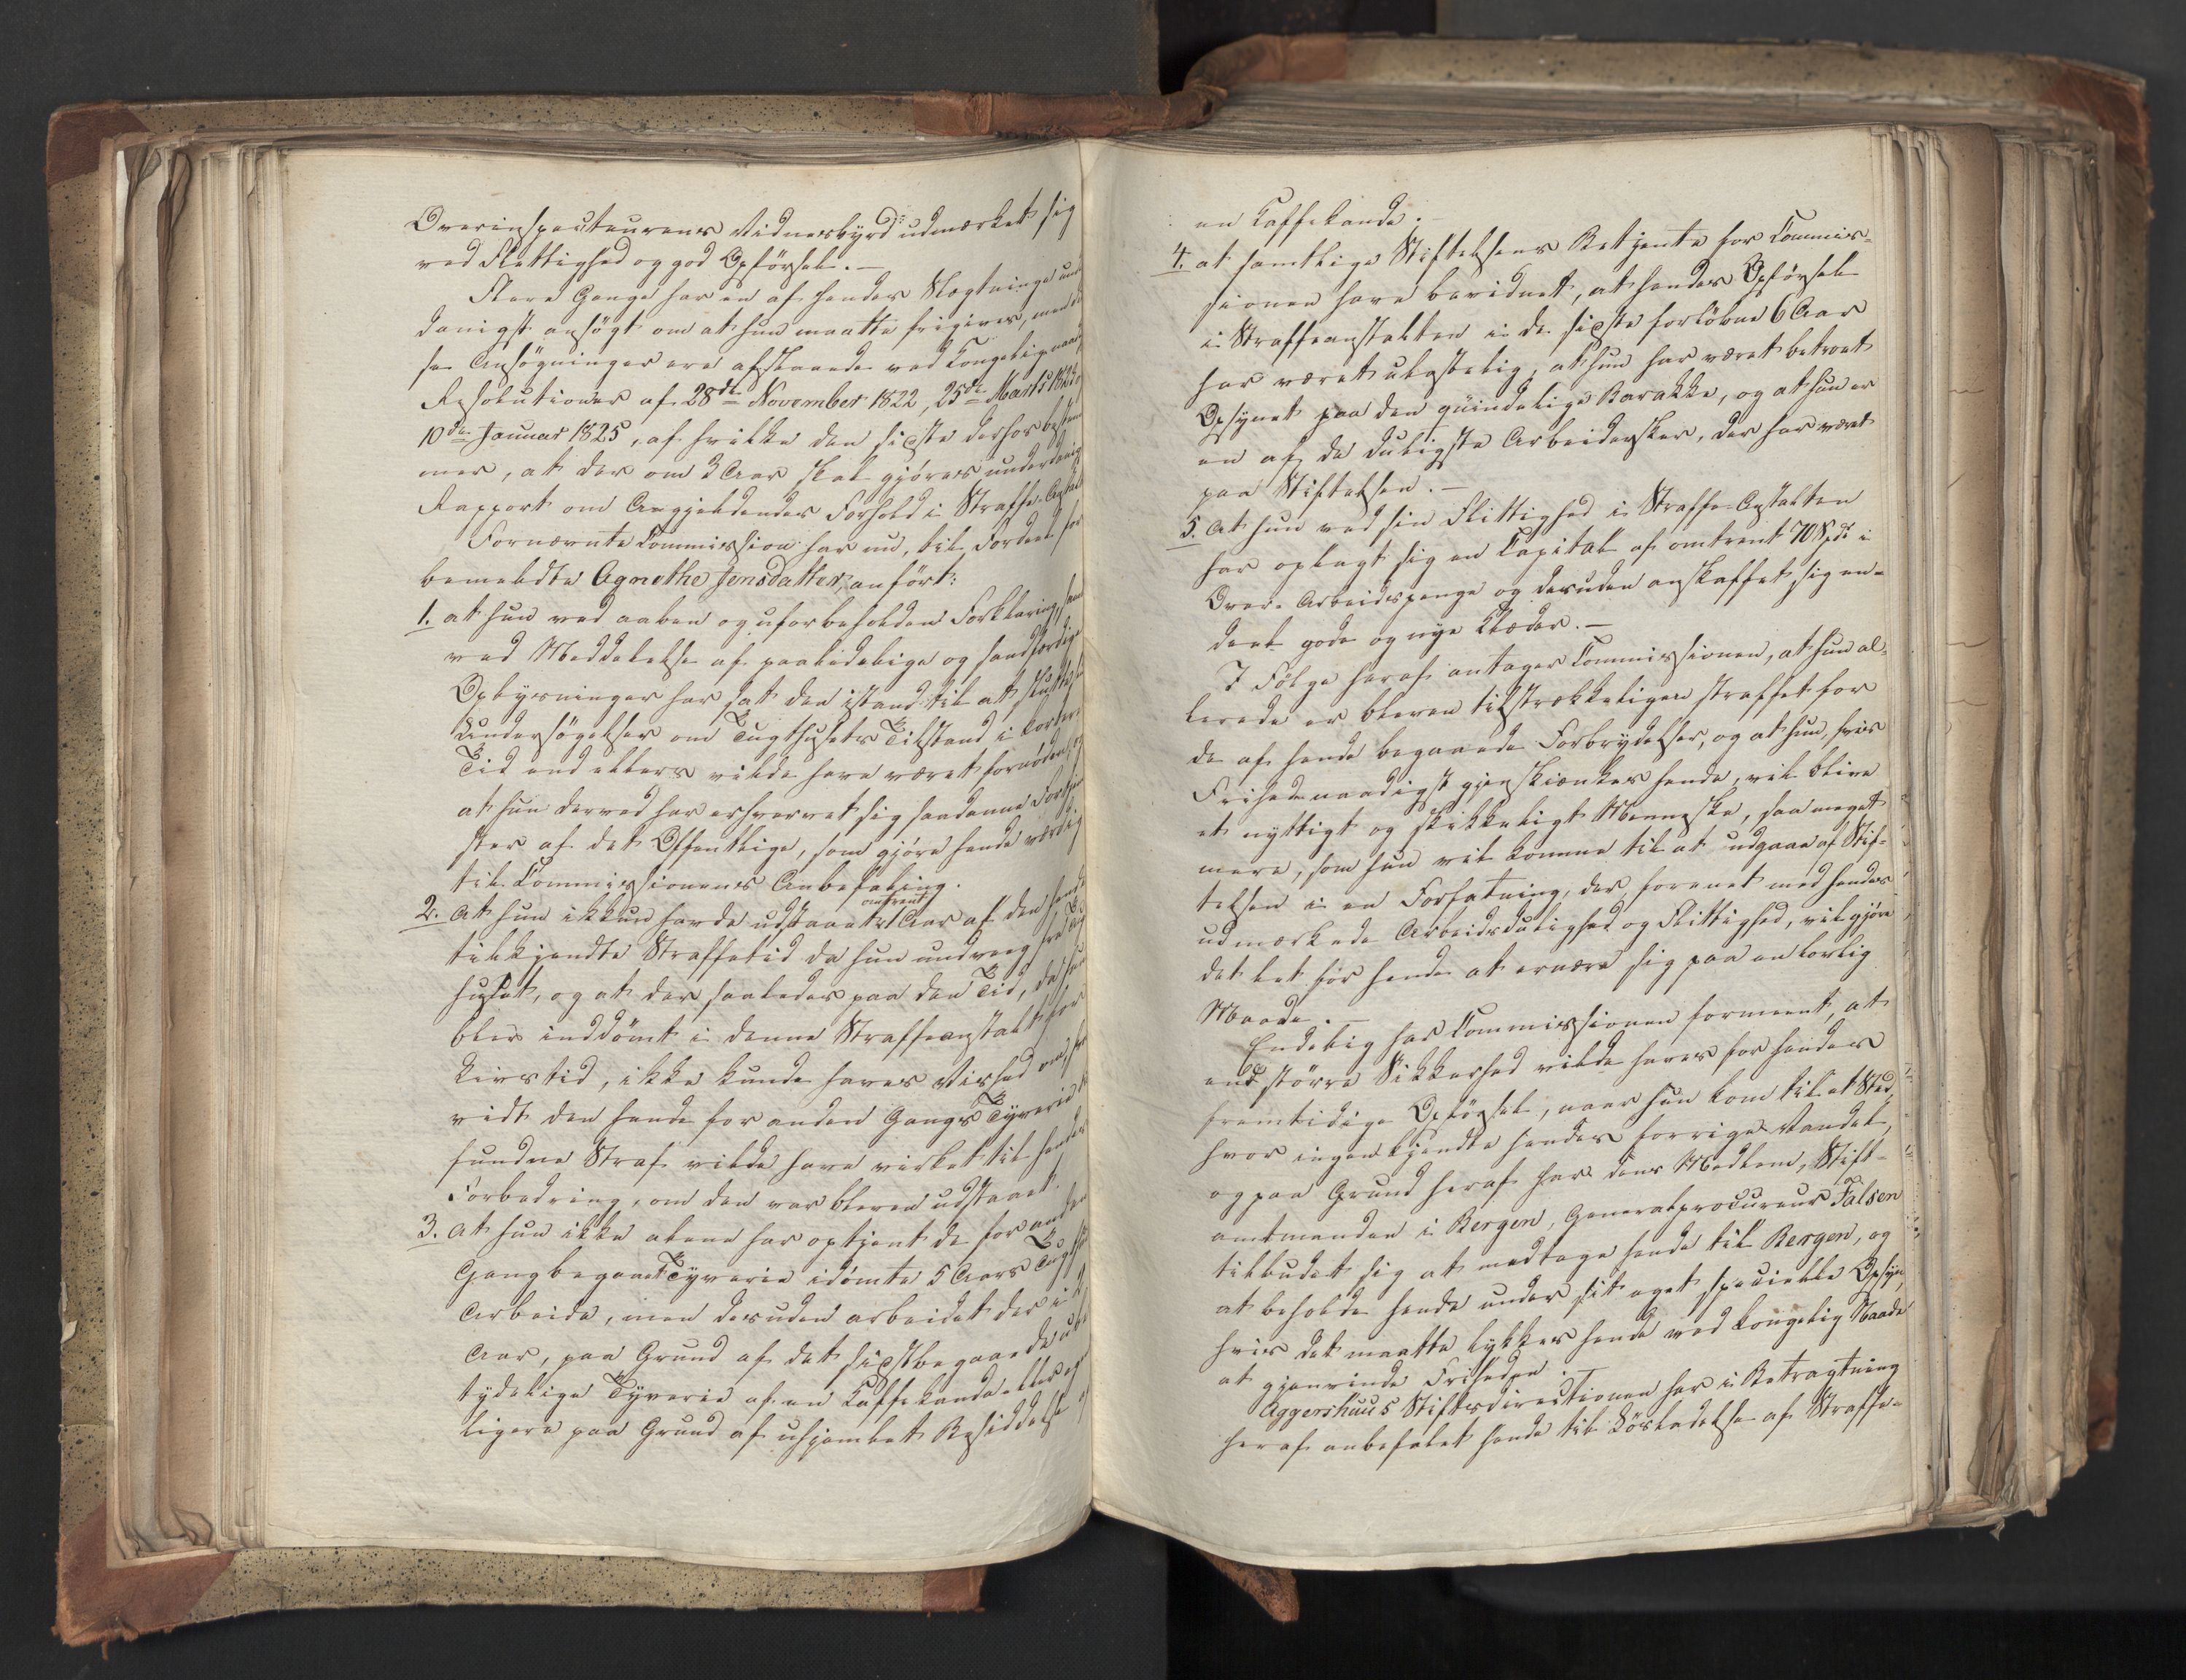 Overinspecteurens Vidnesbyrd udmærket sig
ved Flettighed og god Opförsel. —
Flere Gange har en af hendes Slægtninge un
danigst ansögt om at hun maatte frigives, men di
se Ansögninger ere afslaaede ved Kongelig naad
Resolutioner af 28de November 1822, 25de Marts 1823 o
10de Januar 1825, af hvilke den sidste derhos bestem
mer, at der om 3 Aar skal gjöres underdanig
Rapport om Angjeldendes Forhold i Straffe-Anstal
Fornævnte Commission har nu, til Fordeel for
bemeldte Agnethe Jensdatter, anfört:
1. at hun ved aaben og uforbeholden Forklaring, sam
ved Meddelelse af paalidelige og sandfærdige
Oplysninger har sat den istand til at slutte sin
Undersögelser om Tugthusets Tilstand i kortere
Tid end ellers vilde have været fornöden, og
at hun derved har erhvervet sig saadanne Fortjen
ster af det Offentlige, som gjöre hende værdig
til Commissionens Anbefaling.
omtrent
2. At hun ikkun havde udstaaet Aar af den hende
tilkjendte Straffetid da hun undveeg fra Tug
huset, og at der saaledes paa den Tid, da hun
blev inddömt i denne Straffeanstalt for
Livstid, ikke kunde haves Vished om, hvor
vidt den hende for anden Gangs Tyverie
fundne Straf vilde have virket til hendes
Forbedring, om den var bleven udstaaet.
3. At hun ikke alene har optjent de for anden
Gang begaaet Tyverie idömte 5 Aars Tugth
Arbeide, men desuden arbeidet der i
Aar, paa Grund af det sidstbegaaede ube
tydelige Tyverie af en Kaffekande eller eg
ligere paa Grund af uhjemlet Besiddelse af
en Kaffekande. —
4. at samtlige Stiftelsens Betjente for Commis=
sionen have bevidnet, at hendes Opförsel
i Straffeanstalten i de sidste forlöbne 6 Aar
har været ulastelig, at hun har været betroet
Opsynet paa den qüindelige Barakke, og at hun er
en af de duligste Arbeidersker, der har været
paa Stiftelsen. —
5. At hun ved sin Flittighed i Straffe-Anstalten
har oplagt sig en Capital af omtrent 70 Spd i
Over-Arbeidspenge og desuden anskaffet sig en-
deel gode og nye Klæder. —
I Fölge heraf antager Commissionen, at hun al=
lerede er bleven tilstrækkeligen straffet for
de af hende begaaede Forbrydelser, og at hun, hvis
Frihed naadigst gjenskiænkes hende, vil blive
et nyttigt og skikkeligt Menneske, saa meget
mere, som hun vil komme til at udgaae af Stif=
telsen i en Forfatning, der, forenet med hendes
udmærkede Arbeidsdulighed og Flittighed, vil gjöre
det let for hende at ernære sig paa en lovlig
Maade. —
Endelig har Commissionen formeent, at
end större Sikkerhed vilde haves for hendes
fremtidige Opförsel, naar hun kom til et Sted,
hvor ingen kjendte hendes forrige Vandel,
og paa Grund heraf har dens Medlem, Stift-
amtmanden i Bergen, Generalprocureur Falsen
tilbudet sig at medtage hende til Bergen, og
at beholde hende under sit eget specielle Opsyn,
hvis det maatte lykkes hende ved Kongelig Naade
at gjenvinde Friheden. —
Aggershuus Stiftsdirectionen har i Betragtning
heraf anbefalet hende til Lösladelse af Straffe-